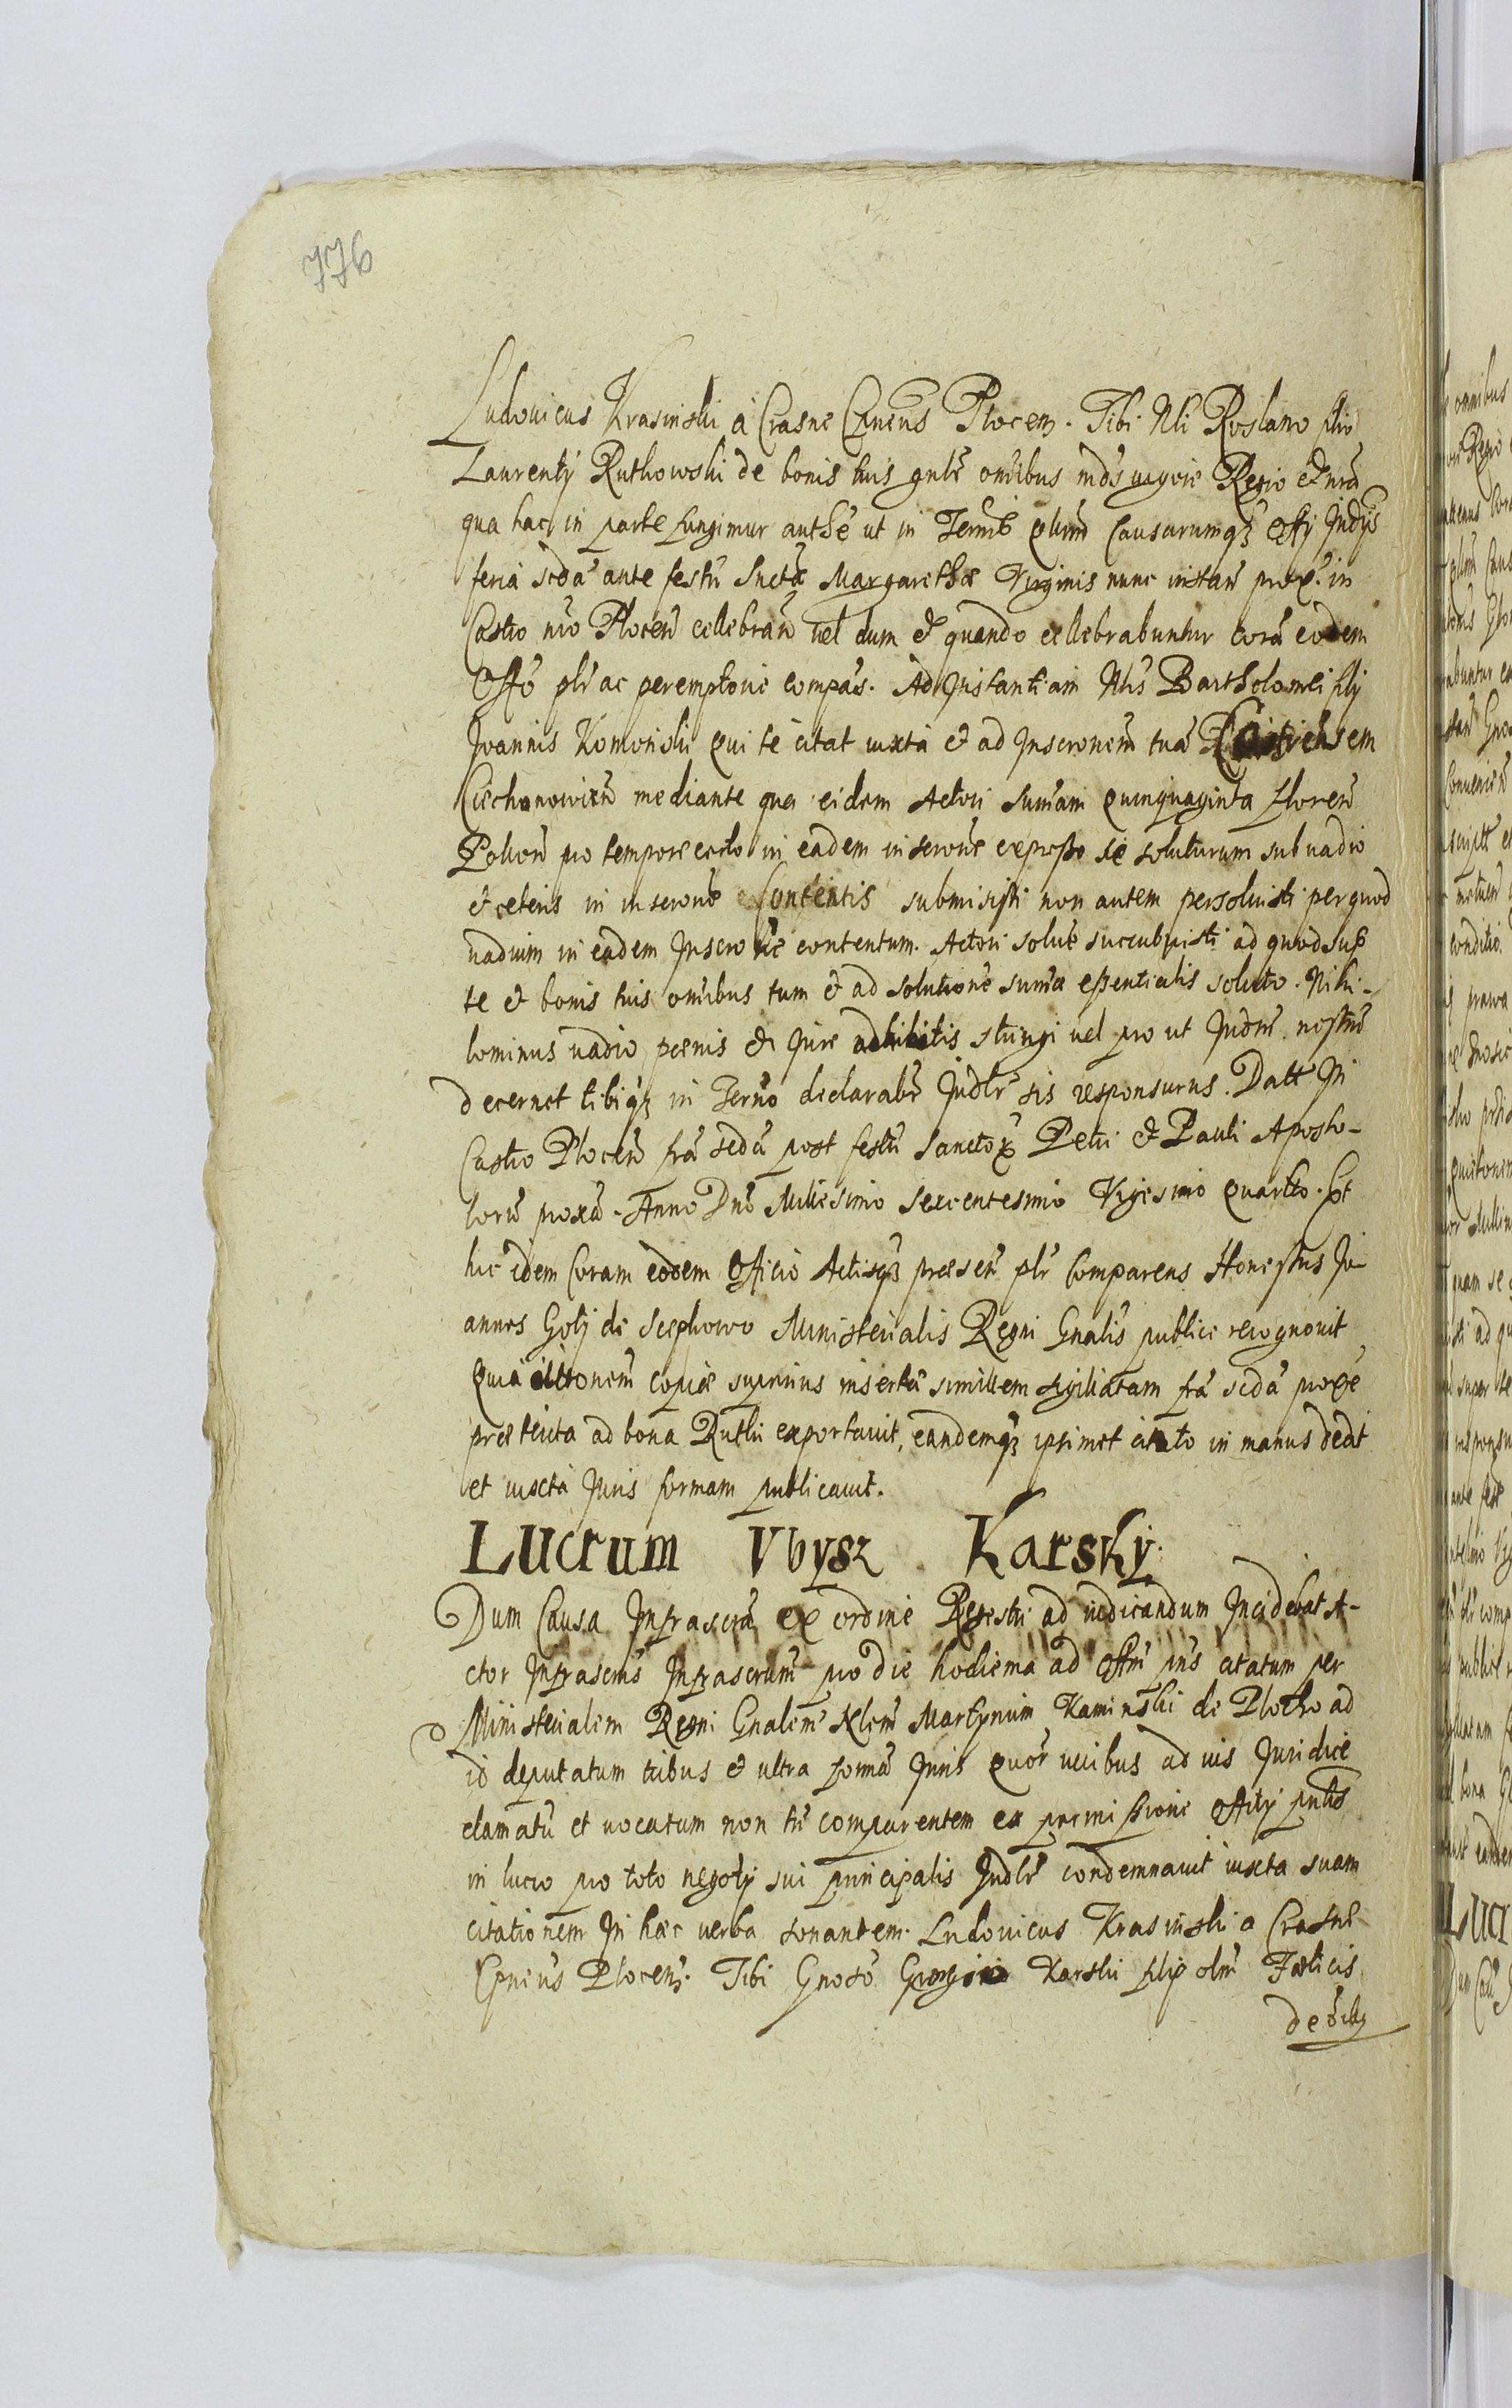 776
Ludovicus Krasinski à Crasne Capneus Plocen. Tibi Nli Roslano filio
Laurentij Rutkowski de bonis tuis gnlr omibus mds vigore Regio et nra
qua hac in parte fungimur authe ut in Termis qlrum Causarumq3 Offij Judijs
feria scda ante festu Sncta Margarethæ Virginis nunc instan prox. in
Castro nro Plocen cellebran vel dum et quando cellebrabuntur cora eodem
Offo plr ac peremptorie compas. Ad Jnstantiam Nlis Bartholomei filij
Joannis Komorski Qui te citat iuxta et ad Jnscronem tua Castrensem
Ciechanowien mediante qua eidem Actori sumam quinquaginta floren
Polon pro tempore certo in eadem inscrone expresso se soluturum sub vadio
et ceteris in inscrone Contentis submisisti non autem persoluisti per quod
vadium in eadem Jnscrone contentum. Actori solue succubuisti ad quod sup
te et bonis tuis omibus tum et ad solutione suma essentialis soluto. Nihi-
lominus vadio pœnis et Jure adhibitis stringi vel pro ut Judm nostrm
decernet tibiq3 in Termo declarabr Judlr sis responsurus. Datt Jn
Castro Plocen fra scda post festu Sanctor Petri et Pauli Aposto-
loru proxa. Anno Dni Millesimo Sexcentesimo Vigesimo Quartto. Et
hic idem Coram eodem Officio Actisq3 præsen plr Comparens Honestus Jo-
annes Goły de Scephowo Ministerialis Regni Gnalis publice recognovit
Quia citonem copiæ superius insertæ similem sigillatam fra scda proxe
præterita ad bona Rutki exportavit, eandemq3 ipsimet citato in manus dedt
et iuxta Juris formam publicavit.
LUcrum Vbysz Karsky.
Dum Causa Jnfrascra ex ordine Regestri ad iudicandum Jncidebat A-
ctor Jnfrascrus Jnfrascrum pro die hodierna ad Offm pns citatum per
Ministerialem Regni Gnalem Nlem Martynum Kaminski de Plotko ad
id deputatum tribus et ultra forma Juris quor vicibus ad ius Juridice
clamatu et vocatum non tn comparentem ex permissione Officij pntis
in lucro pro toto negotij sui principalis Judlr condemnavit iuxta suam
citationem Jn hæc verba sonantem. Ludovicus Krasinski a Crasne
Cpneus Plocen. Tibi Gnoso Georgio Karski filio olm Fœlicis
de oibq